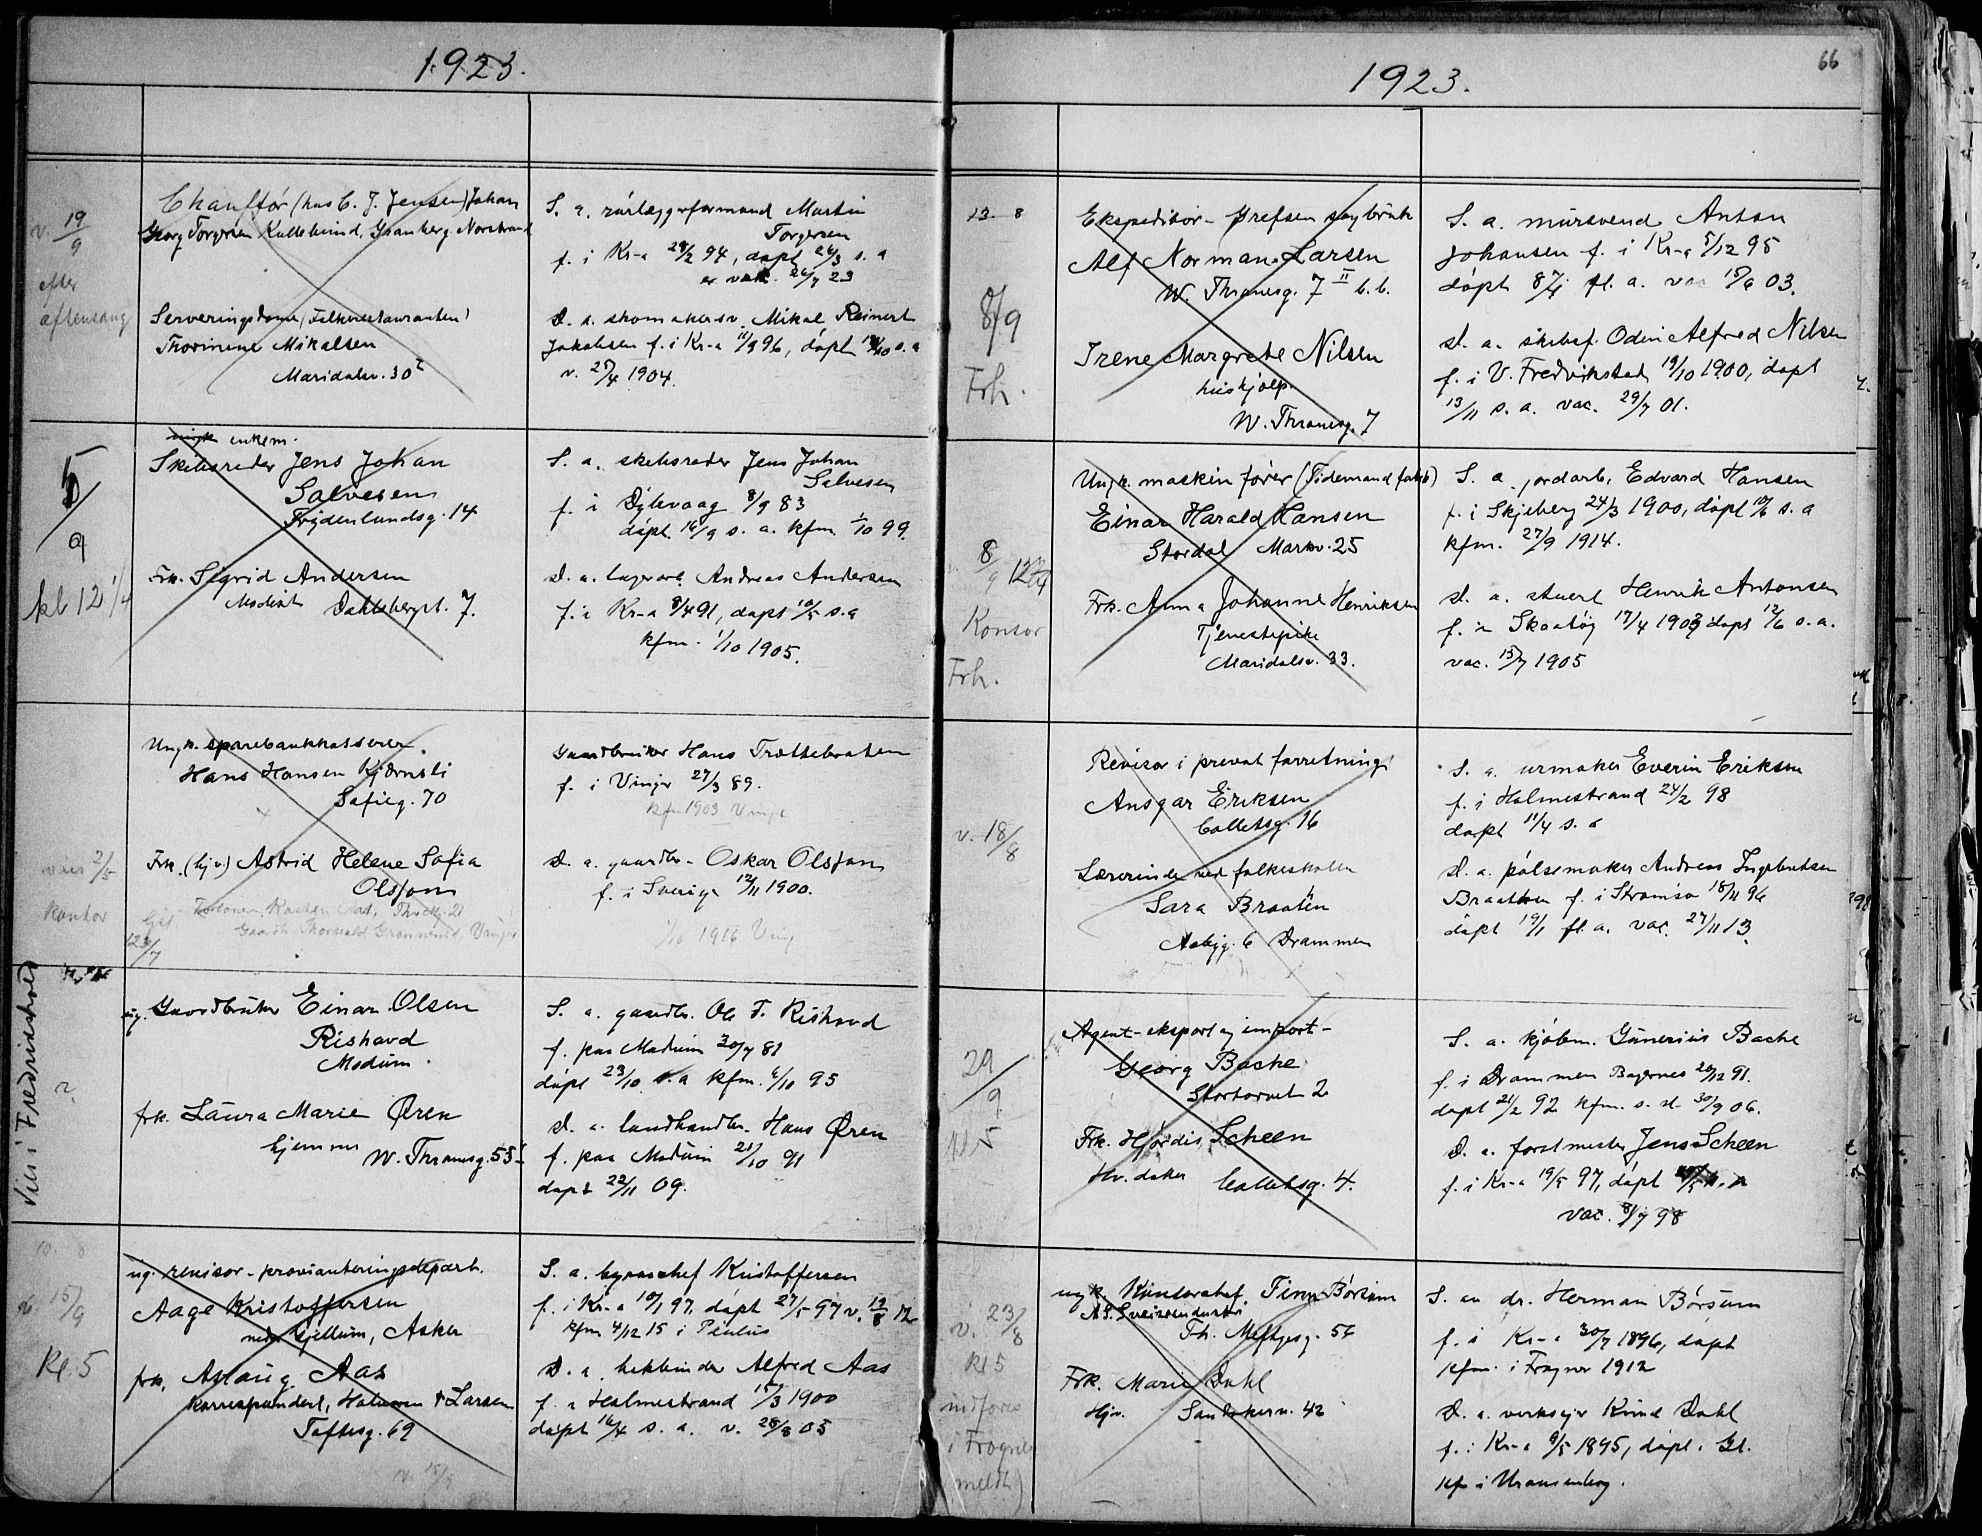 1923.
v. 19/9
efter
aftensang
Chauffør (hos C. J. Jensen) Johan
Georg Torgersen Nordstrand
Serveringsdame
Thorinene Mikalsen
Maridalsv. 30
S. a. rørlæggerformand Martin
Torgersen
f. i Kr-a 94, døpt s. a
23
D. a. skomakersv. Mikal Reinert
Jakobsen f. i Kr-a 11/9 96, døpt s. a
v. 25/4 1904.
5/9
kl 12 1/4
enkem.
Skibsreder Jens Johan
Salvesen
Frydenlundsg. 14
Frk. Sigrid Andersen
Modist Dahlsbergst. 7.
S. a. skibsreder Jens Johan
Salvesen
f. i Dybvaag 8/9 83
døpt 16/9 s. a. kfm. 1/10 99.
D. a. lagerarb. Andreas Andersen
f. i Kr-a 8/4 91, døpt s. a
kfm. 1/10 1905.
kontor
Ungk. sparebankkasserer.
Hans Hansen Kjernsli
Sofieg. 70
Frk. (hjv.) Astrid Helene Sofia
Olsson
Gaardbruker Hans Trøttebraten
f. i Vinger 27/3 89.
kfm 1903 Vinger
D. a. gaardbr. Oskar Olsson
f. i Sverige 12/11 1900.
1916 Ving
Vies i Fredrikshald
ug. Gaardbruker Einar Olsen
Rishovd
Modum.
frk. Laura Marie Øren
hjemme
W. Thranesg. 55
S. a. gaardbr. Ole T. Rishovd
f. paa Modum 30/7 81
døpt 23/10 s. a kfm. 6/10 95
D. a. landhandler Hans Øren
f. paa Modum 21/10 91
døpt 22/11 09.
15/9
Kl. 5
ug. revisor - provianteringsdepart.
Aage Kristoffersen
nedre Gjellum, Asker
frk. Aslaug Aas
Korrespondent, & Larsen
Toftesg. 69
S. a. byraachef Kristoffersen
f. i Kr-a 10/1 97, døpt 27/5 97 v. 19/8 12
kfm 4/12 15 i Paulus
D. a. bokbinder Alfred Aas
f. i Holmestrand 15/3 1900
døpt 16/4 s. a. v. 28/8 05
66
1923.
13. 8
8/9
Frh.
Ekspeditør - Grefsen sagbruk
Alf Norman Larsen
W. Thranesg. 7 II b. b.
Irene Margrete Nilsen
hushjælp.
W. Thranesg. 7
S. a. mursvend Anton
Johansen f. i Kr-a 5/12 95
døpt fl. a. vac 15/6 03.
D. a. skibsf. Odin Alfred Nilsen
f. i V. Fredrikstad 19/10 1900, døpt
13/11 s. a. vac. 29/7 01.
8/9
Kontor
Frh.
Ungk. maskinfører (Tidemand fabr.)
Einar Harald Hansen
Stordal Markv. 25
Frk. Anna Johanne Henriksen
Tjenestepike
Maridalsv. 33.
S. a. jordarb. Edvard Hansen
f. i Skjeberg 24/3 1900, døpt s. a
kfm. 27/9 1914.
D. a. stuert Henrik Antonsen
f. i Skaatøy 17/4 1903 døpt 12/6 s. a.
vac. 15/7 1905
v. 18/8
Revisor i privat forretning
Ansgar Eriksen
Colletsg. 16
Lærerinde ved folkeskolen
Sara Braaten
Aabyg. 6 Drammen
S. a. urmaker Everin Eriksen
f. i Holmestrand 24/2 98
døpt 11/4 s. a
D. a. pølsemaker Andreas Ingebretsen
Braathen f. i Strømsø 18/11 96
døpt 19/1 fl. a. vac. 27/11 13.
29/9
kl 5
Agent - eksport og import -
Georg Bache
Stortorvet 2
Frk. Hjørdis Scheen
Hv. datter Colletsg. 4.
S. a. kjøbm. Gunerius Bache
f. i Drammen Bragernes 20/12 91.
døpt 21/2 92 kfm. s. st. 30/9 06.
D. a. forstmester Jens Scheen
f. i Kr-a 19/5 97, døpt
vac. 8/7 98
v. 23/8
kl 5
indføres
i Frogner
meldt)
ungk. Kontorchef Finn Børsum
A.S. Sveiseindustri
Th. Meftyesg. 56
Frk. Marie Dahl
Hjv. Sandakerv. 42
S. av dr. Herman Børsum
f. i Kr-a 30/7 1896, døpt
kfm. i Frogner 1912
D. a. verkseier Knud Dahl
f. i Kr-a 9/5 1895, døpt i Gl.
kf i Uranienborg.